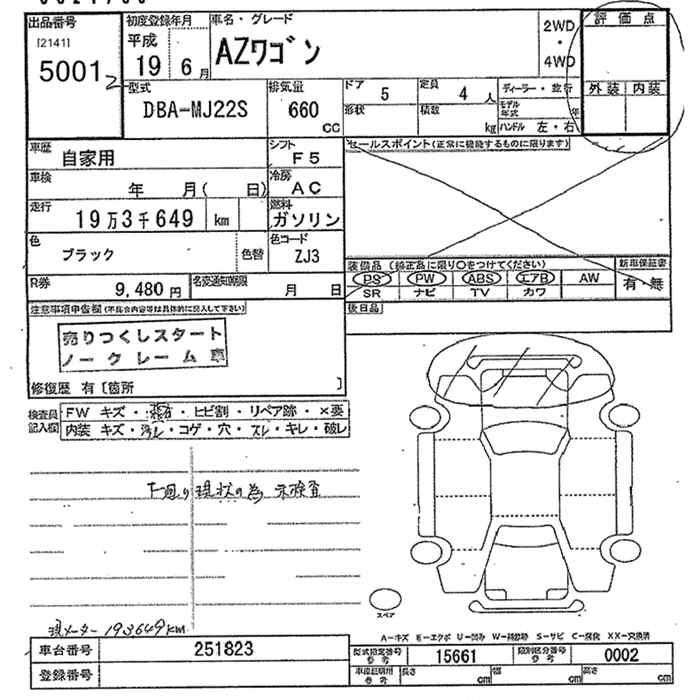 出品番号
[2141]
5001
2
初度登録年月
平成
19 6月
車名・グレード
AZワゴン
2WD
・
4WD
評価点
外装 内装
型式
DBA-MJ22S
排気量
660
CC
ドア 5
定員 4 人
形状
積数
kg
ディーラー・並行
モデル年式 年
ハンドル 左・右
車歴
自家用
シフト
F5
セールスポイント(正常に機能するものに限ります)
車検
年 月( 日)
冷房
AC
走行
19万3千649 km
燃料
ガソリン
色
ブラック
色替
色コード
ZJ3
R券
9,480円
名変通知期限
月 日
装備品(純正品に限り○をつけてください)
PS PW ABS エアB AW
SR ナビ TV カワ
新車保証書
有・無
後日品
注意事項申告欄(不具合内容等は具体的に記入して下さい)
売りつくしスタート
ノークレーム車
修復歴 有[箇所 ]
検査員
記入欄
FW キズ・ ・ヒビ割・リペア跡・×要
内装 キズ・汚レ・コゲ・穴・スレ・キレ・破レ
下回り現状の為 未検査
スペア
現メーター 193649KM
A-キズ E-エクボ U-凹み W-補修跡 S-サビ C-腐食 XX-交換済
車台番号 251823
登録番号
型式指定番号
参考
15661
類別区分番号
参考
0002
車庫証明用
参考
長さ cm
幅 cm
高さ cm